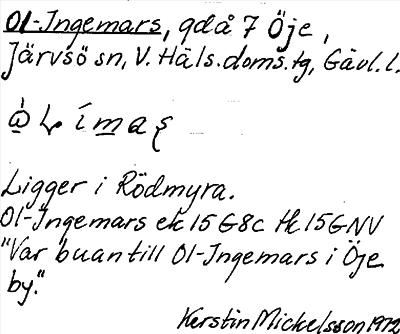 Ol-Ingemars, gdå 7 Öje,
Järvsö sn, V. Häls. doms. tg, Gävl. l.
Ligger i Rödmyra.
Ol-Ingemars ek 15 G8c tk 15GNV
"Var buan till Ol-Ingemars i Öje
by."
Kerstin Mickelsson 1972